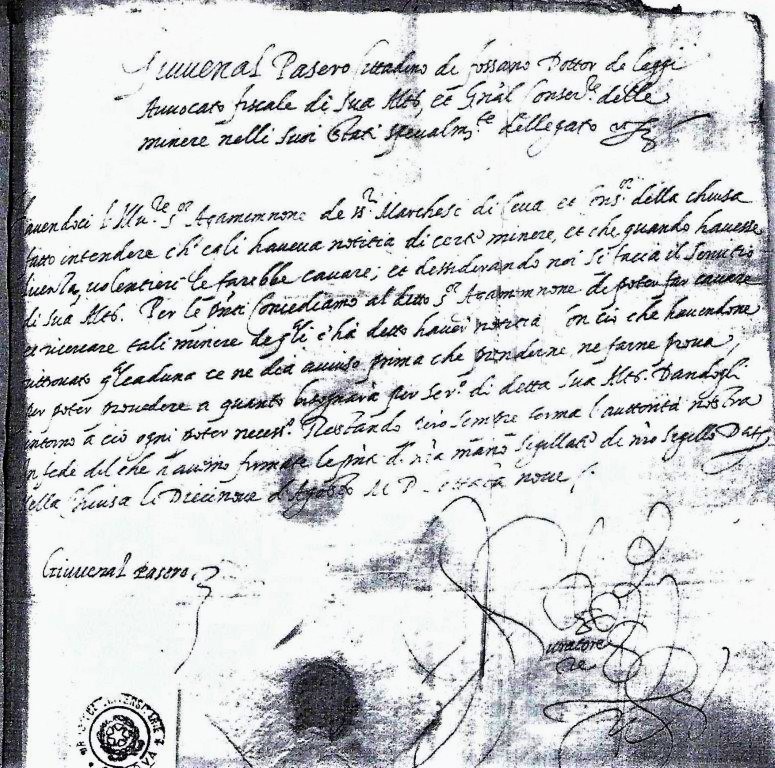 Giuvenal Pasero Cittadino di fossano Dottor de leggi
Avvocato fiscale di Sua Alta, et Gnal Conserre delle
minere nelli suoi stati specialmte dellegato
havendoci l'Illre Sor Agamennone de Marchesi di Ceva et Consor della chiusa
fatto intendere ch'egli haveva notitia di certe minere, et che quando havesse
licenza, volentieri le farebbe cavare; et dessiderando noi si facia il servitio
di sua Alta. Per le pnti Concediamo al detto Sor Agamennone di poter far cavare
et ricercare tali minere de qli c'ha detto haver notitia Con cio che havendone
ritrovato ce ne dia aviso prima che prenderne, ne farne prova
per poter provedere a quanto bisognara per sero di detta Sua Alta. Dandogli
intorno a cio ogni poter necesso. Restando pero sempre ferma l'auttorità nostra
In fede del che havemo firmate le pnti di nra mano sigillate de nro sigillo Dat
della Chiusa le Diecinove d'Agosto M D ottanta nove
Giuvenal Pasero